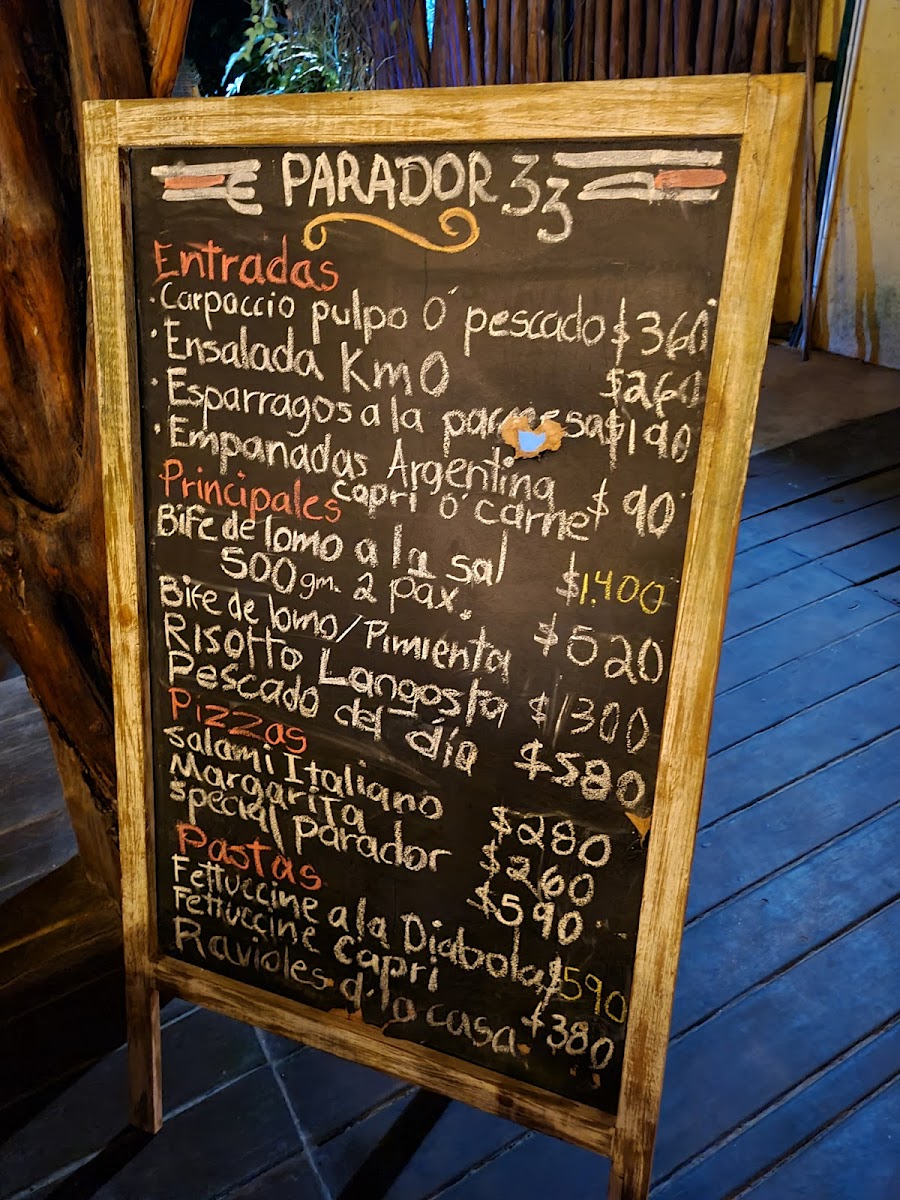 PARADOR 33
Entradas
· Carpaccio pulpo O' pescado $360
· Ensalada Km0 $260
· Esparragos a la parmesa $190
· Empanadas Argentina
capri o' carne $90
Principales
Bife de lomo a la sal
500gm. 2 pax. $1,400
Bife de lomo/Pimienta $520
Risotto Langosta $1300
Pescado del día $580
Pizzas
salami Italiano $280
Margarita $260
special Parador $590
Pastas
Fettuccine a la Diabola $590
Fettuccine Capri
Ravioles d' la casa $380